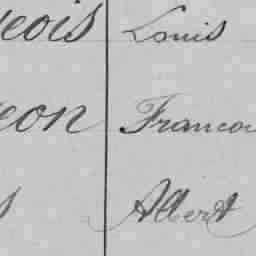 eois Louis
eon Francoi
s Albert